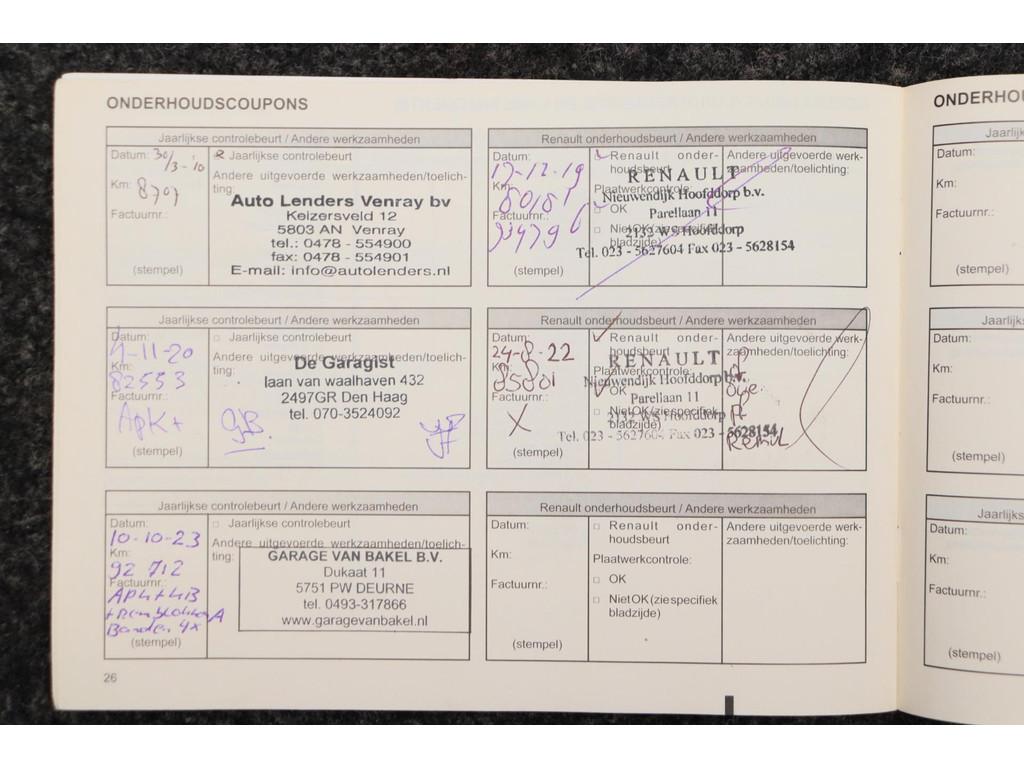 ONDERHOUDSCOUPONS
Jaarlijkse controlebeurt / Andere werkzaamheden
Datum: 30/3-10
Jaarlijkse controlebeurt
Km: 8707
Andere uitgevoerde werkzaamheden/toelichting:
Factuurnr.:
Auto Lenders Venray bv
Keizersveld 12
5803 AN Venray
tel.: 0478 - 554900
fax: 0478 - 554901
E-mail: info@autolenders.nl
(stempel)
Renault onderhoudsbeurt / Andere werkzaamheden
Datum:
17-12-19
Km:
80181
Factuurnr.:
(stempel)
Renault onder-
houdsbeurt
Plaatwerkcontrole:
OK
Niet OK (zie specifiek
bladzijde)
Andere uitgevoerde werk-
zaamheden/toelichting:
RENAULT
Nieuwendijk Hoofddorp b.v.
Parellaan 11
2132 WS Hoofddorp
Tel. 023 - 5627604 Fax 023 - 5628154
Jaarlijkse controlebeurt / Andere werkzaamheden
Datum:
4-11-20
Km:
82553
Factuurnr.:
APK +
(stempel)
Jaarlijkse controlebeurt
Andere uitgevoerde werkzaamheden/toelich-
ting:
De Garagist
laan van waalhaven 432
2497GR Den Haag
tel. 070-3524092
GB
Renault onderhoudsbeurt / Andere werkzaamheden
Datum:
24-8-22
Km:
85801
Factuurnr.:
X
(stempel)
Renault onder-
houdsbeurt
Plaatwerkcontrole:
OK
Niet OK (zie specifiek
bladzijde)
Andere uitgevoerde werk-
zaamheden/toelichting:
RENAULT
Nieuwendijk Hoofddorp b.v.
Parellaan 11
2132 WS Hoofddorp
Tel. 023 - 5627604 Fax 023 - 5628154
Jaarlijkse controlebeurt / Andere werkzaamheden
Datum:
10-10-23
Km:
92 712
Factuurnr.:
APK + HB
Banden 4x
(stempel)
Jaarlijkse controlebeurt
Andere uitgevoerde werkzaamheden/toelich-
ting:
GARAGE VAN BAKEL B.V.
Dukaat 11
5751 PW DEURNE
tel. 0493-317866
www.garagevanbakel.nl
Renault onderhoudsbeurt / Andere werkzaamheden
Datum:
Km:
Factuurnr.:
(stempel)
Renault onder-
houdsbeurt
Plaatwerkcontrole:
OK
Niet OK (zie specifiek
bladzijde)
Andere uitgevoerde werk-
zaamheden/toelichting:
26
ONDERHOU
Jaarlij
Datum:
Km:
Factuurnr.:
(stempel)
Jaarlijks
Datum:
Km:
Factuurnr.:
(stempel)
Jaarlijks
Datum:
Km:
Factuurnr.:
(stempel)